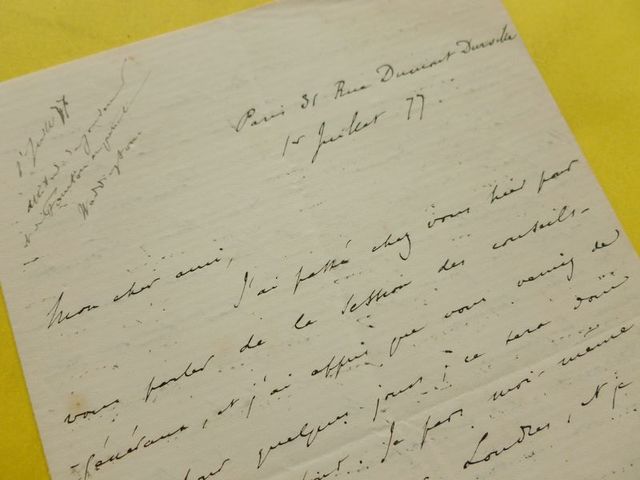 Paris 31 Rue Dumont Durville
1er Juillet 77.
1er Juillet 77
Waddington
Mon cher ami,
J'ai passé chez vous hier pour
vous parler de la session des conseils-
généraux, et j'ai appris que vous veniez de
pour quelques jours; ce sera donc
Je pars moi-même
Londres, et je